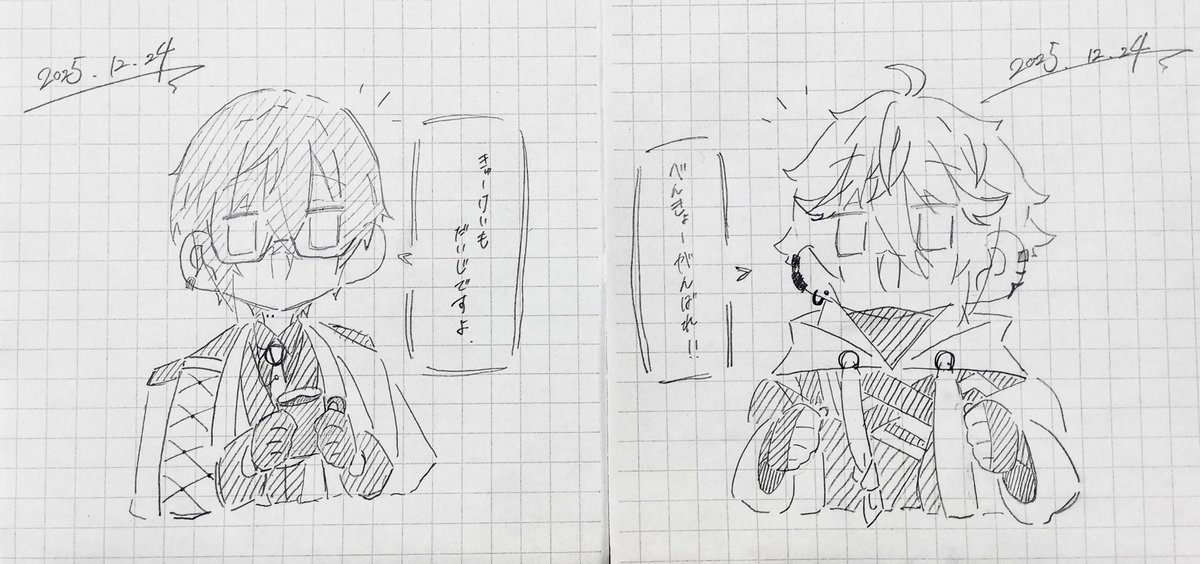 2025.12.24
きゅーけいも
だいじですよ.
2025.12.24
べんきょーがんばれ!!